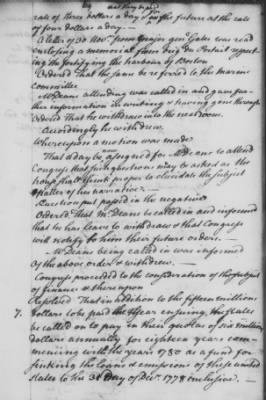 rate of three dollars a day & for the future at the rate
of four dollars a day. —
A letter of 30 Novr. from Major gen Gates was read
enclosing a memorial from brig du Portail respect
ing the fortifying the harbour of Boston
Ordered That the same be referred to the Marine
Committee
Mr Deane attending was called in and gave fur
ther information in writing & having gone through
Ordered That he withdraw into the next room.
Accordingly he withdrew.
Whereupon a motion was made
That a day be assigned for Mr Deane to attend
Congress that such questions may be asked as the
house shall think proper to elucidate the subject
Matter of his narrative. —
Question put passed in the negative
Ordered That Mr Deane be called in and informed
that he has leave to withdraw & that Congress
will notify to him their future orders. —
Mr Deane being called in was informed
of the above order & withdrew.
Congress proceeded to the consideration of the subject
of finance & thereupon
Resolved That in addition to the fifteen millions
7. Dollars to be paid the Year ensuing, the States
be called on to pay in their quotas of six million
dollars annually for eighteen years com
mencing with the year 1780 as a fund for
sinking the loans & emissions of these united
States to the 31 Day of Decr. 1778 inclusive. —